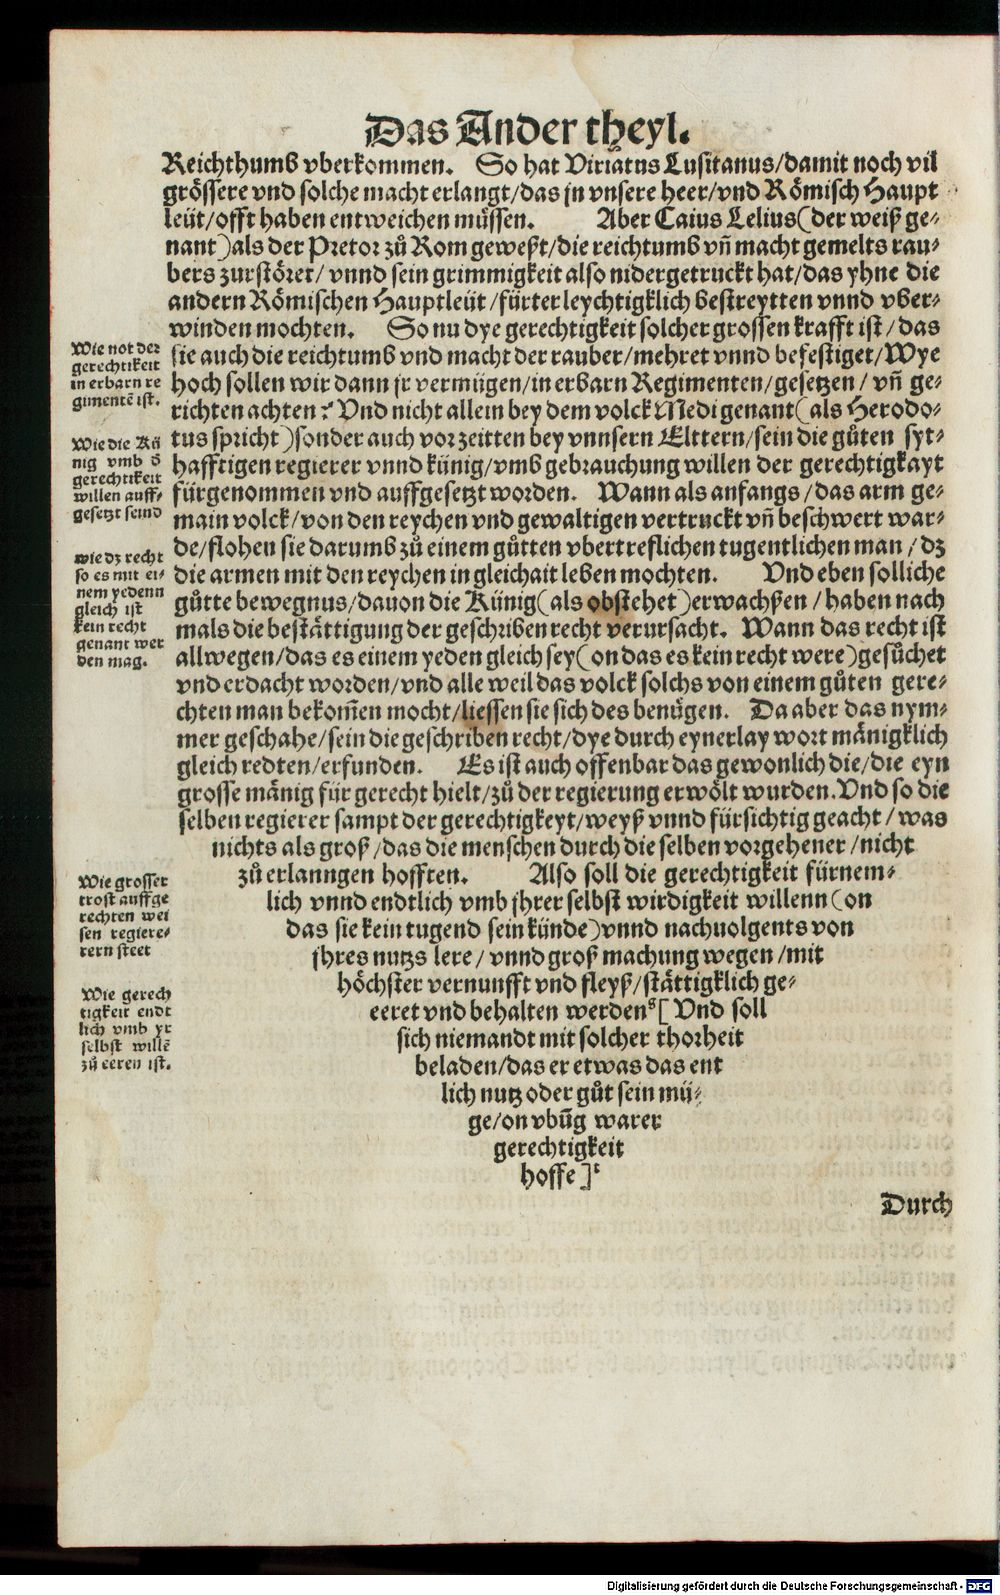 Das Ander theyl.
Reichthumb vberkommen. So hat Viriatus Lusitanus/damit noch vil
grössere vnd solche macht erlangt/das jn vnsere heer/vnd Römisch Haupt
leüt/offt haben entweichen müssen. Aber Caius Lelius(der weiß ge⸗
nant)als der Pretor zů Rom geweßt/die reichtumb vñ macht gemelts rau⸗
bers zurstöret/ vnnd sein grimmigkeit also nidergetruckt hat/das yhne die
andern Römischen Hauptleüt/fürter leychtigklich bestreytten vnnd vber⸗
winden mochten. So nu dye gerechtigkeit solcher grossen krafft ist/das
sie auch die reichtumb vnd macht der rauber/mehret vnnd befestiget/Wye
hoch sollen wir dann jr vermügen/in erbarn Regimenten/gesetzen/ vñ ge⸗
richten achten? Vnd nicht allein bey dem volck Medi genant(als Herodo⸗
tus spricht)sonder auch vor zeitten bey vnnsern Elttern/sein die gůten syt⸗
hafftigen regierer vnnd künig/vmb gebrauchung willen der gerechtigkayt
fürgenommen vnd auffgesetzt worden. Wann als anfangs/das arm ge⸗
main volck/von den reychen vnd gewaltigen vertruckt vñ beschwert war⸗
de/flohen sie darumb zů einem gůtten vbertreflichen tugentlichen man/dz
die armen mit den reychen in gleichait leben mochten. Vnd eben solliche
gůtte bewegnus/dauon die Künig(als obstehet)erwachßen/haben nach
mals die bestättigung der geschriben recht verursacht. Wann das recht ist
allwegen/das es einem yeden gleich sey(on das es kein recht were)gesůchet
vnd erdacht worden/vnd alle weil das volck solchs von einem gůten gere⸗
chten man bekom̃en mocht/liessen sie sich des benügen. Da aber das nym⸗
mer geschahe/sein die geschriben recht/dye durch eynerlay wort mänigklich
gleich redten/erfunden. Es ist auch offenbar das gewonlich die/die eyn
grosse mänig für gerecht hielt/zů der regierung erwölt wurden. Vnd so die
selben regierer sampt der gerechtigkeyt/weyß vnnd fürsichtig geacht/was
nichts als groß/das die menschen durch die selben vorgehener/nicht
zů erlanngen hofften. Also soll die gerechtigkeit fürnem⸗
lich vnnd endtlich vmb jhrer selbst wirdigkeit willenn(on
das sie kein tugend sein künde)vnnd nachuolgents von
jhres nutzs lere/ vnnd groß machung wegen/mit
höchster vernunfft vnd fleyß/stättigklich ge⸗
eeret vnd behalten werden [ Vnd soll
sich niemandt mit solcher thorheit
beladen/das er etwas das ent
lich nutz oder gůt sein mü⸗
ge/on vbũg warer
gerechtigkeit
hoffe ]
Durch
Wie not der
gerechtikeit
in erbarn re
gimentẽ ist.
Wie die Kü
nig vmb d̕
gerechtikeit
willen auff⸗
gesetzt seind
wie dz recht
so es mit ei⸗
nem yedenn
gleich ist
kein recht
genant wer
den mag.
Wie grosser
trost auffge
rechten wei
sen regiere⸗
rern steet
Wie gerech
tigkeit endt
lich vmb yr
selbst willẽ
zů eeren ist.
Digitalisierung gefördert durch die Deutsche Forschungsgemeinschaft - DFG